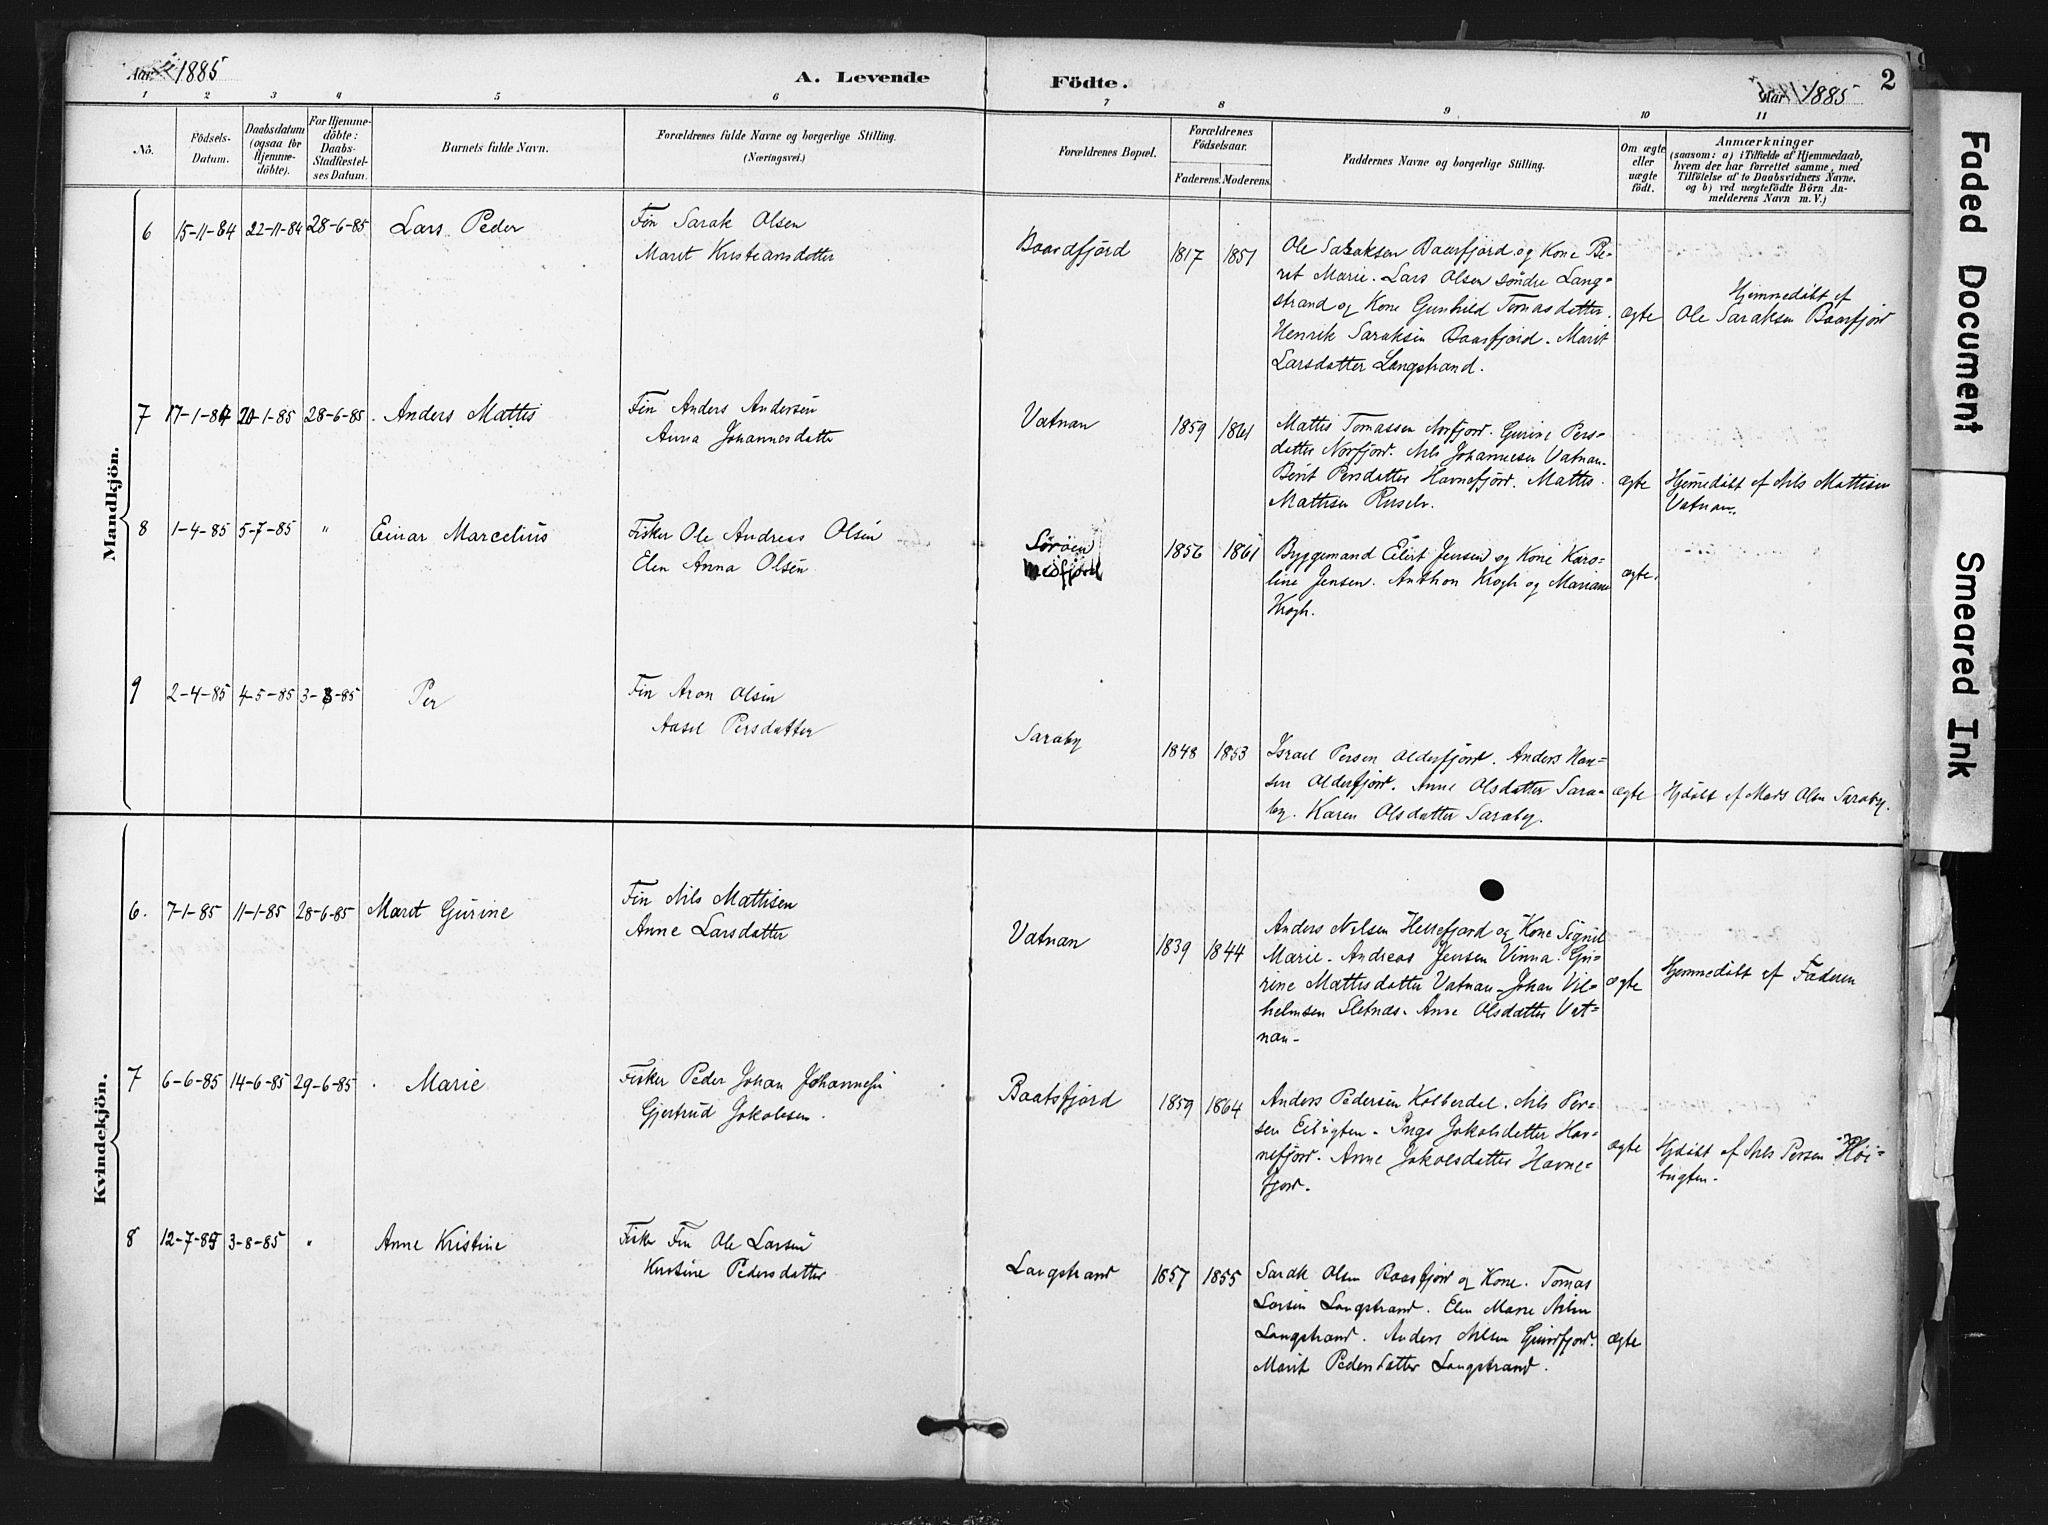 Aar 1885
A. Levende
Födte.
Aar 1885
2
1 2 3 4 5 6 7 8 9 10 11
No.
Födsels-
Datum.
Daabsdatum
(ogsaa for
Hjemme-
döbte).
For Hjemme-
döbte:
Daabs-
Stadfæstel-
ses Datum.
Barnets fulde Navn.
Forældrenes fulde Navne og borgerlige Stilling.
(Næringsvei.)
Forældrenes Bopæl.
Forældrenes
Födselsaar.
Faderens. Moderens.
Faddernes Navne og borgerlige Stilling.
Om ægte
eller
uægte
födt.
Anmærkninger
(saasom: a) i Tilfælde af Hjemmedaab,
hvem der har forrettet samme, med
Tilföielse af to Daabsvidners Navne.
og b) ved uægtefödte Börn An-
melderens Navn m. V.)
Mandkjön.
6 15-11-84 22-11-84 28-6-85 Lars Peder
Fin Sarak Olsen
Maret Kristiansdatter
Baardfjord 1817 1851
Ole Saraksen Baarfjord og Kone Be-
ret Marie. Lars Olsen söndre Lang-
strand og Kone Gunhild Tomasdatter.
Henrik Saraksen Baasfjord. Marit
Larsdatter Langstrand.
ægte
Hjemmedöbt af
Ole Saraksen Baarfjord
7 17-1-84 20-1-85 28-6-85 Anders Mattis
Fin Anders Andersen
Anna Johannesdatter
Vatnan 1859 1861
Mattis Tomassen Norfjord. Gurine Pers-
datter Norfjord. Nils Johannesen Vatnan.
Berit Persdatter Havnefjord. Mattis
Mattisen Russelv.
ægte
Hjemedöbt af Nils Mattisen
Vatnan.
8 1-4-85 5-7-85 " Einar Marcelius
Fisker Ole Andreas Olsen
Elen Anna Olsen
Sörøen
Medfjord
1856 1861
Byggemand Eilert Jensen og Kone Karo-
line Jensen. Anthon Krogh og Mariane
Krogh.
ægte.
9 2-4-85 4-5-85 3-8-85 Per
Fin Aron Olsen
Aasel Persdatter
Saraby 1848 1853
Israel Persen Olderfjord. Anders Han-
sen Olderfjord. Anne Olsdatter Sara-
by. Karen Olsdatter Saraby.
ægte
Hjdöbt af Mads Olsen Saraby.
Kvindekjön.
6. 7-1-85 11-1-85 28-6-85 Maret Gurine
Fin Nils Mattisen
Anne Larsdatter
Vatnan 1839 1844
Anders Nilsen Hellefjord og Kone Signil
Marie. Andreas Jensen Vinna. Gu-
rine Mattisdatter Vatnan. Johan Vil-
helmsen Sletnæs. Anne Olsdatter Vat-
nan.
ægte
Hjemmedöbt af Faderen
7 6-6-85 14-6-85 29-6-85 Marie
Fisker Peder Johan Johannesen
Gjertrud Jakobsen.
Baatsfjord 1859 1864
Anders Pedersen Kolberdal. Nils Per-
sen Eibugten. Inga Jakobsdatter Hav-
nefjord. Anne Jakobsdatter Havne-
fjord.
ægte
Hjdöbt af Nils Persen Höi-
bugten.
8 12-7-85 3-8-85 " Anne Kristine
Fisker Fin Ole Larsen
Kirstine Pedersdatter
Langstrand 1857 1855
Sarak Olsen Baasfjord og Kone. Tomas
Larsen Langstrand. Elen Marie Nilsen
Langstrand. Anders Nilsen
Marit Pedersdatter Langstrand.
ægte
Faded Document
Smeared Ink